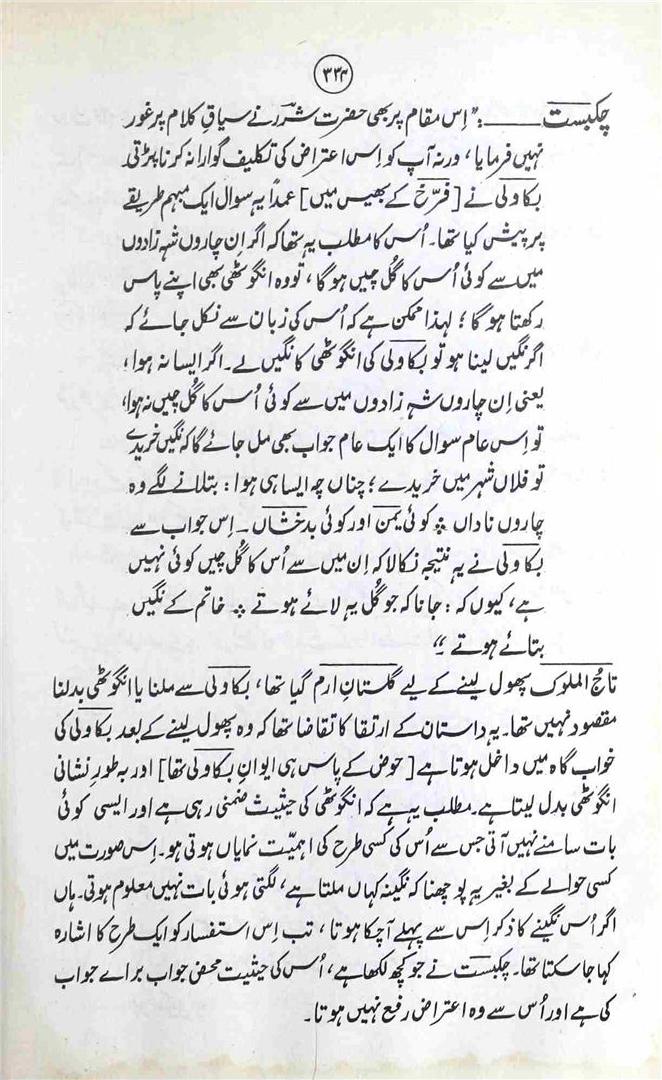 ۳۳۴
چکبست ـــــــ: "اِس مقام پر بھی حضرت شررؔ نے سیاقِ کلام پر غور
نہیں فرمایا، ورنہ آپ کو اِس اعتراض کی تکلیف گوارا نہ کرنا پڑتی۔
بکاولی نے [فرّخ کے بھیس میں] عمداً یہ سوال ایک مبہم طریقے
پر پیش کیا تھا۔ اُس کا مطلب یہ تھا کہ اگر اِن چاروں شہ زادوں
میں سے کوئی اُس کا گُل چیں ہوگا، تو وہ انگوٹھی بھی اپنے پاس
رکھتا ہوگا؛ لہذا ممکن ہے کہ اُس کی زبان سے نکل جائے کہ
اگر نگیں لینا ہو تو بکاولی کی انگوٹھی کا نگیں لے۔ اگر ایسا نہ ہوا،
یعنی اِن چاروں شہ زادوں میں سے کوئی اُس کا گُل چیں نہ ہوا،
تو اِس عام سوال کا ایک عام جواب بھی مل جائے گا کہ نگیں خریدے
تو فلاں شہر میں خریدے؛ چناں چہ ایسا ہی ہوا: بتلانے لگے وہ
چاروں ناداں ؞ کوئی یمن اور کوئی بدخشاں۔ اِس جواب سے
بکاولی نے یہ نتیجہ نکالا کہ اِن میں سے اُس کا گُل چیں کوئی نہیں
ہے، کیوں کہ: جانا کہ جو گُل یہ لائے ہوتے ؞ خاتم کے نگیں
بتائے ہوتے"۔
تاج الملوک پھول لینے کے لیے گلستانِ ارم گیا تھا، بکاولی سے ملنا یا انگوٹھی بدلنا
مقصود نہیں تھا۔ یہ داستان کے ارتقا کا تقاضا تھا کہ وہ پھول لینے کے بعد بکاولی کی
خواب گاہ میں داخل ہوتا ہے [حوض کے پاس ہی ایوانِ بکاولی تھا] اور بہ طورِ نشانی
انگوٹھی بدل لیتا ہے۔ مطلب یہ ہے کہ انگوٹھی کی حیثیت ضمنی رہی ہے اور ایسی کوئی
بات سامنے نہیں آتی جس سے اُس کی کسی طرح کی اہمیّت نمایاں ہوتی ہو۔ اِس صورت میں
کسی حوالے کے بغیر یہ پوچھنا کہ نگینہ کہاں ملتا ہے، لگتی ہوئی بات نہیں معلوم ہوتی۔ ہاں
اگر اُس نگینے کا ذکر اِس سے پہلے آچکا ہوتا، تب اِس استفسار کو ایک طرح کا اشارہ
کہا جاسکتا تھا۔ چکبست نے جو کچھ لکھا ہے، اُس کی حیثیت محض جواب براے جواب
کی ہے اور اُس سے وہ اعتراض رفع نہیں ہوتا۔